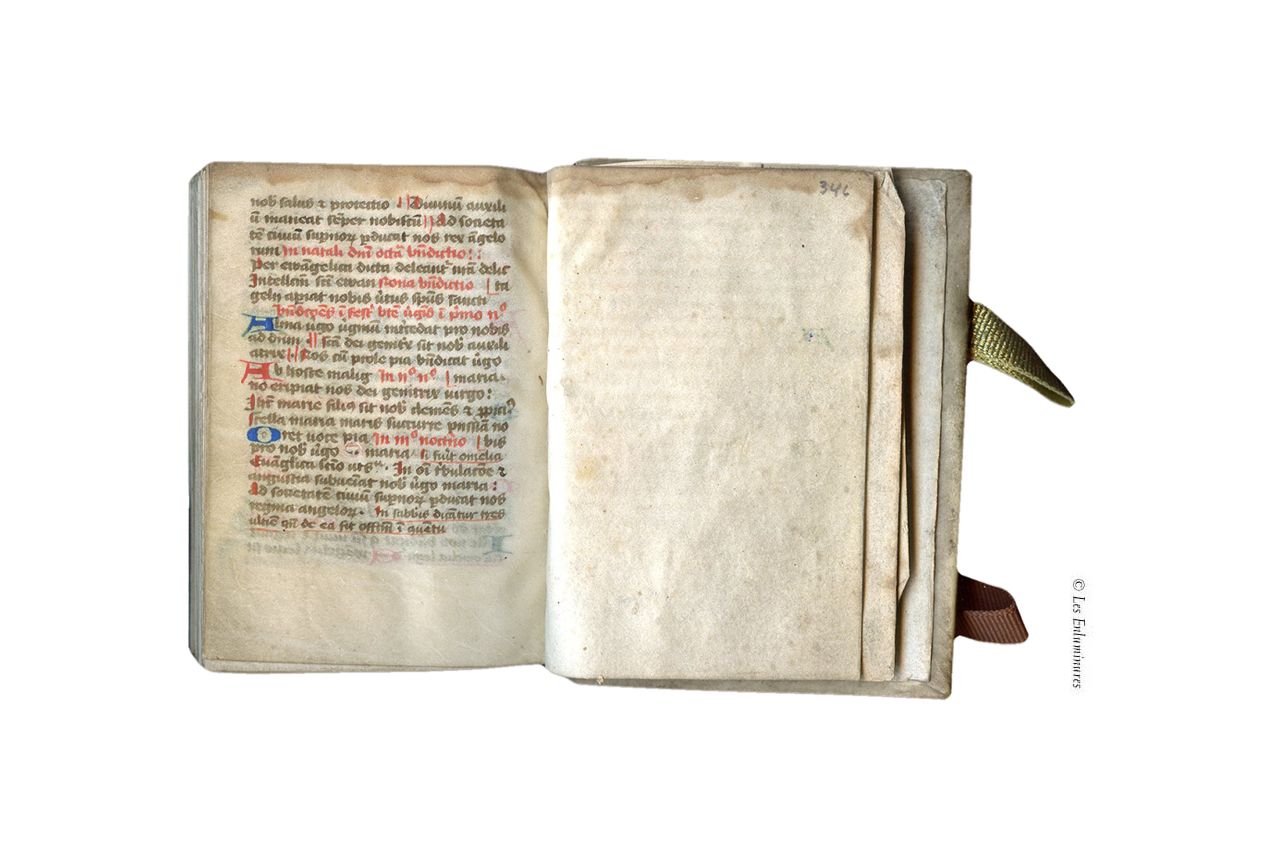 nob̄ salus ⁊ protectio Diuinū auxili
ū maneat sēper nobiscū Ad societa
tē ciuiū sup̄norꝝ p̄ducat nos rex āgelo
rum In natali dn̄i octā bn̄dictio:
Per ewāgelica dicta deleant̄ nr̄a delic
Intellcm̄ scm̄ ewan storia bn̄dictio ta
gelii apiat nobis ūtus sp̄us sancti
Alma ūgo ūginū int̄cedat pro nobis
ad dn̄m scā dei genitx̄ sit nob̄ auxili
atrix Nos cū prole pia bn̄dicat ūgo
Ab hoste malig In nᵒ nᵒ maria.
no eripiat nos dei genitrix uirgo:
Ihc̄ marie filius sit nob̄ clemēs ⁊ ꝓpiciꝰ
Stella maria maris succurre pijssīa no
Oret uoce pia In iiiᵒ noct̄no bis
pro nob̄ ūgo maria si fuit̄ omelia
Euāglica lectio In oī t̄bulacōe ⁊
angustia subueniat nob̄ ūgo maria:
Ad societatē ciuiū sup̄norꝝ p̄ducat nos
regina angelorꝝ. In sabbīs dicānt̄ur tres
de ea fit offm̄ ī
346
© Les Enluminures